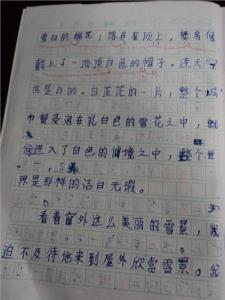 雪白的棉花；落在屋顶上，替房屋
戴上了一顶顶白色的帽子。连天
也是白的。白茫茫的一片，整个城
市都浸泡在乳白色的雪花之中，
像进入了白色的仙境之中，整个世
界是那样的洁白无瑕。
看着窗外这么美丽的雪景，我
迫不及待地来到屋外欣赏雪景。我